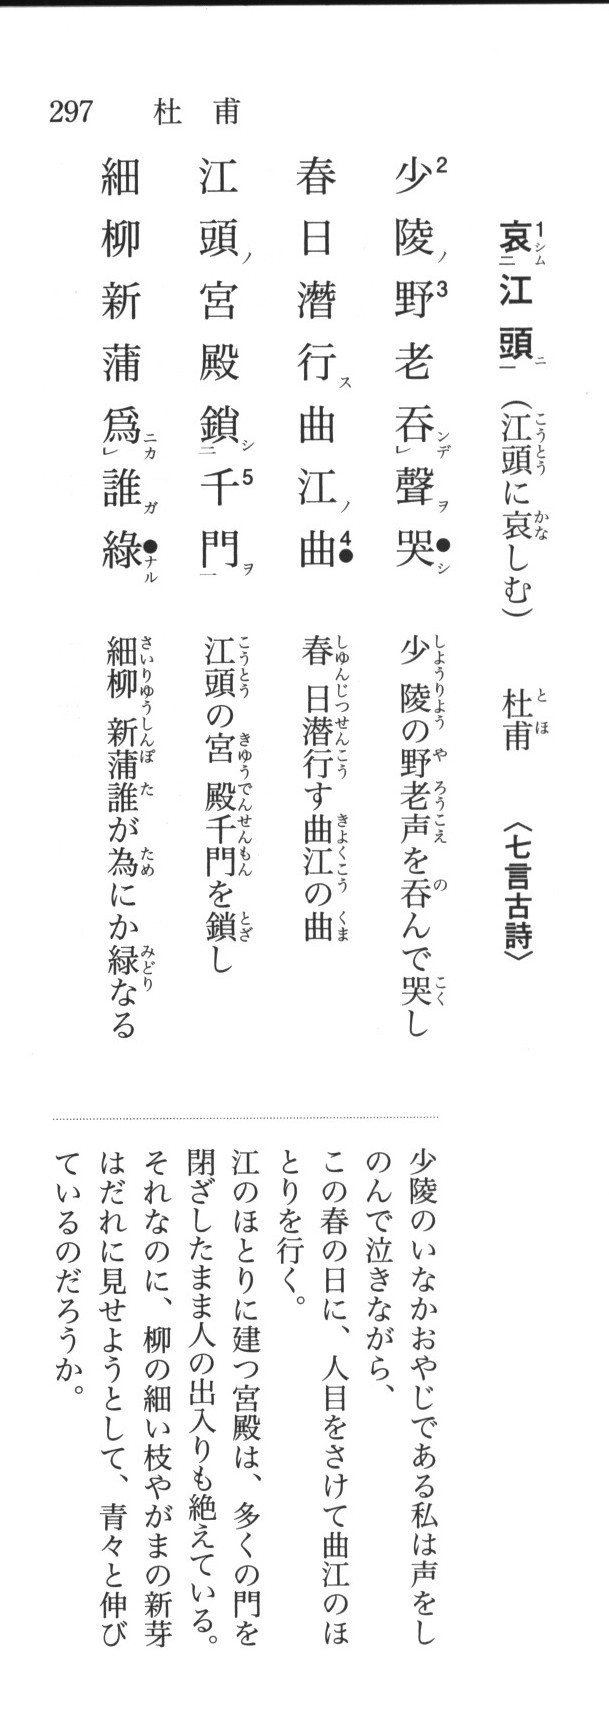 297 杜甫
哀シム二江頭ニ一（江頭に哀しむ） 杜甫 〈七言古詩〉
少陵ノ野老呑ンデレ聲ヲ哭シ
春日潛行ス曲江ノ曲
江頭ノ宮殿鎖シ二千門ヲ一
細柳新蒲爲ニカレ誰ガ綠ナル
少陵の野老声を呑んで哭し
春日潜行す曲江の曲
江頭の宮殿千門を鎖し
細柳新蒲誰が為にか緑なる
少陵のいなかおやじである私は声をし
のんで泣きながら、
この春の日に、人目をさけて曲江のほ
とりを行く。
江のほとりに建つ宮殿は、多くの門を
閉ざしたまま人の出入りも絶えている。
それなのに、柳の細い枝やがまの新芽
はだれに見せようとして、青々と伸び
ているのだろうか。